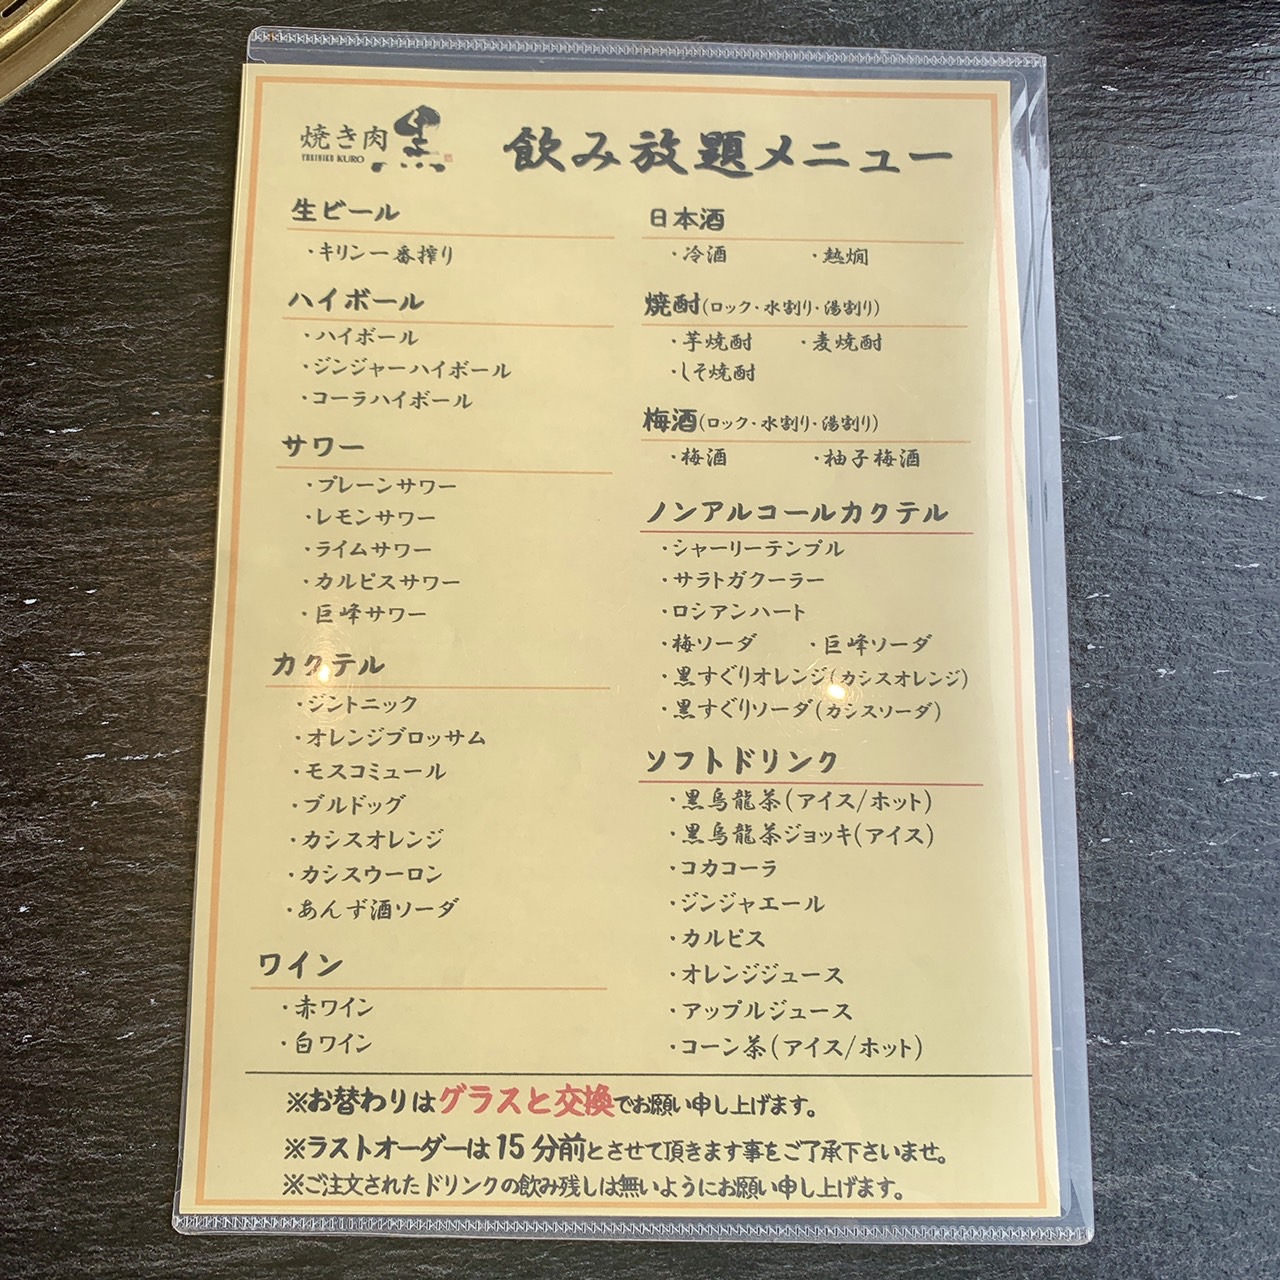 焼き肉 黒
YAKINIKU KURO
飲み放題メニュー
生ビール
・キリン一番搾り
ハイボール
・ハイボール
・ジンジャーハイボール
・コーラハイボール
サワー
・プレーンサワー
・レモンサワー
・ライムサワー
・カルピスサワー
・巨峰サワー
カクテル
・ジントニック
・オレンジブロッサム
・モスコミュール
・ブルドッグ
・カシスオレンジ
・カシスウーロン
・あんず酒ソーダ
ワイン
・赤ワイン
・白ワイン
日本酒
・冷酒 ・熱燗
焼酎(ロック・水割り・湯割り)
・芋焼酎 ・麦焼酎
・しそ焼酎
梅酒(ロック・水割り・湯割り)
・梅酒 ・柚子梅酒
ノンアルコールカクテル
・シャーリーテンプル
・サラトガクーラー
・ロシアンハート
・梅ソーダ ・巨峰ソーダ
・黒すぐりオレンジ(カシスオレンジ)
・黒すぐりソーダ(カシスソーダ)
ソフトドリンク
・黒烏龍茶(アイス/ホット)
・黒烏龍茶ジョッキ(アイス)
・コカコーラ
・ジンジャエール
・カルピス
・オレンジジュース
・アップルジュース
・コーン茶(アイス/ホット)
※お替わりはグラスと交換でお願い申し上げます。
※ラストオーダーは15分前とさせて頂きます事をご了承下さいませ。
※ご注文されたドリンクの飲み残しは無いようにお願い申し上げます。